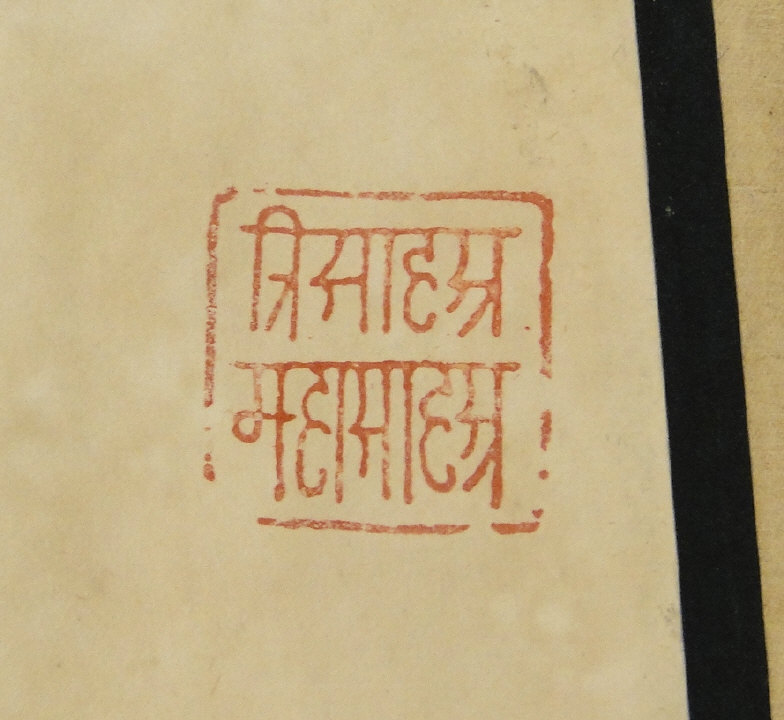 त्रिसाहस्र
महासाहस्र